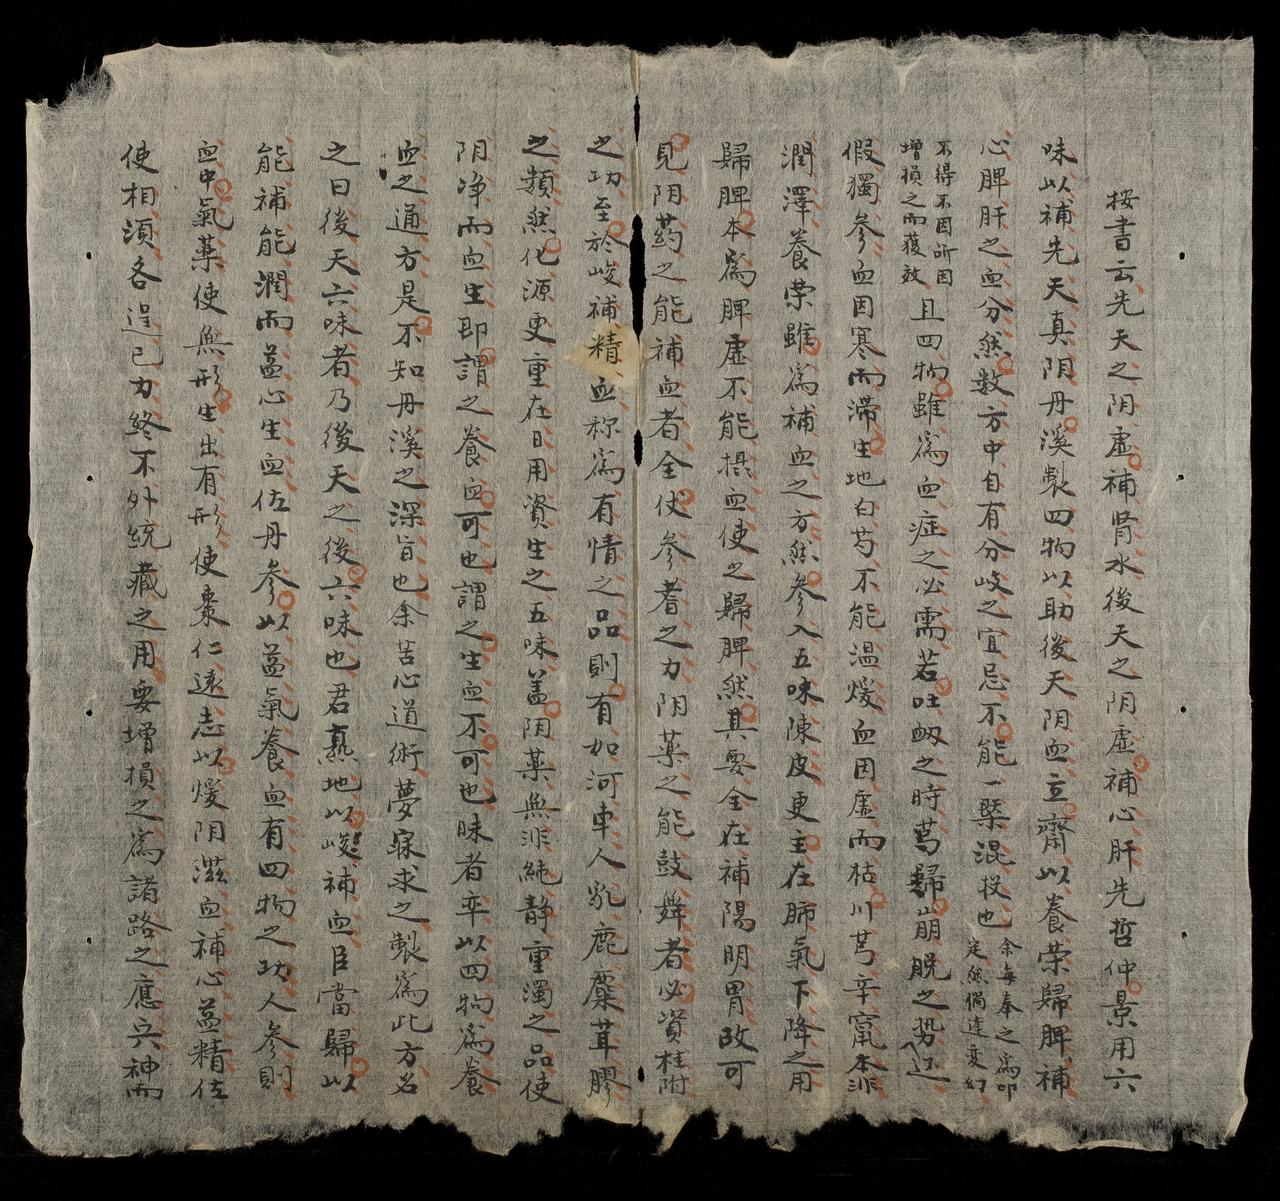 按書云先天之阴虚補肾水後天之阴虚補心肝先哲仲景用六
味以補先天真阴丹溪製四物以助後天阴血立齋以养荣歸脾補
心脾肝之血分然数方中自有分岐之宜忌不能一槩混投也
余每奉之為印
定然倘達变幻
不得不因所因
增損之而獲效
且四物雖為血症之必需若吐衂之時芎歸崩脱之势
假獨參血因寒而滞生地白芍不能温煖血因虚而枯川芎辛竄本非
潤澤養荣雖為補血之方然參入五味陳皮更主在肺氣下降之用
歸脾本為脾虚不能摄血使之歸脾然其要全在補陽明胃故可
見阴药之能補血者全仗參耆之力阴薬之能鼓舞者必資桂附
之功至於峻補精血称為有情之品則有加河車人乳鹿麋茸膠
之類然化源更重在日用資生之五味盖阴薬無非純静重濁之品使
阴净而血生即謂之養血可也謂之生血不可也昧者卒以四物為養
血之通方是不知丹溪之深旨也余苦心道術夢寐求之製為此方名
之曰後天六味者乃後天之後六味也君熟地以峻補血臣當歸以
能補能潤而益心生血佐丹參以益氣養血有四物之功人參則
血中氣薬使無形生出有形使棗仁遠志以煖阴滋血補心益精佐
使相須各逞已力終不外統藏之用要增損之為諸路之應兵神而